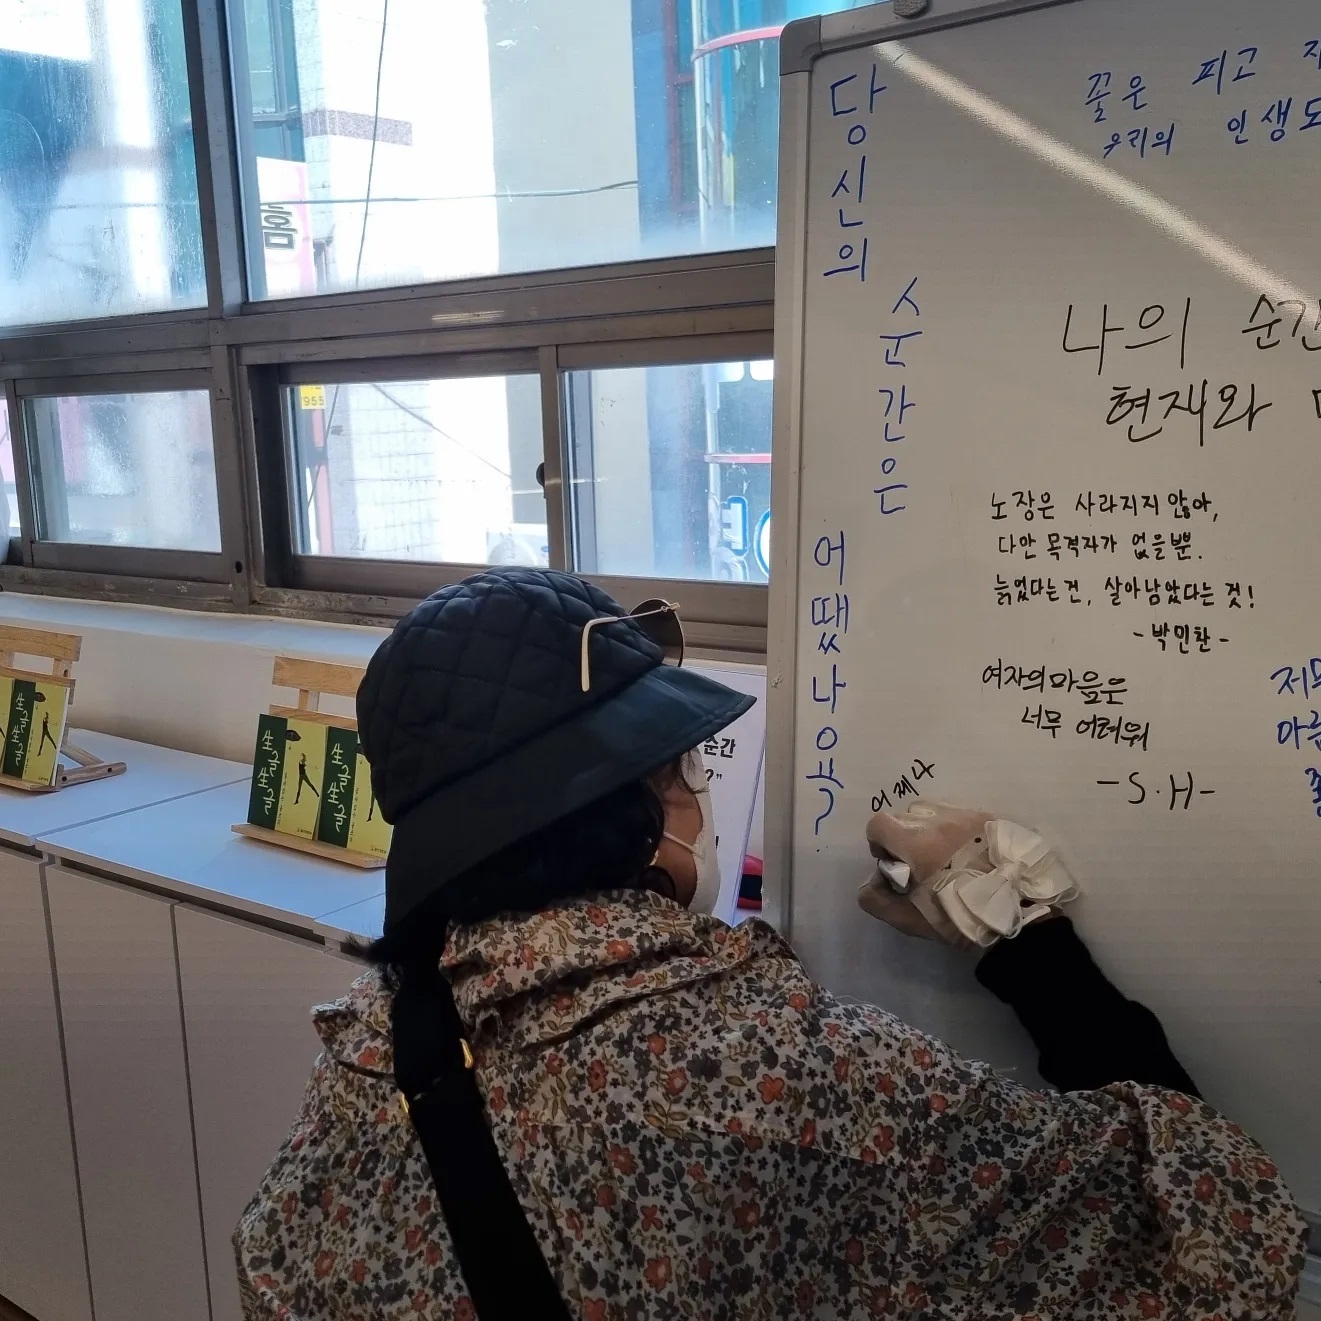 당신의
순간은
어땠나요?
꽃은 피고
우리의 인생도
나의 순간
현재와
노장은 사라지지 않아,
다만 목격자가 없을뿐.
늙었다는건, 살아남았다는 것!
-박민환-
여자의마음은
너무 어려워
-S.H-
어제나
홈
1955
순간
?"
生글生글
生글生글
生글